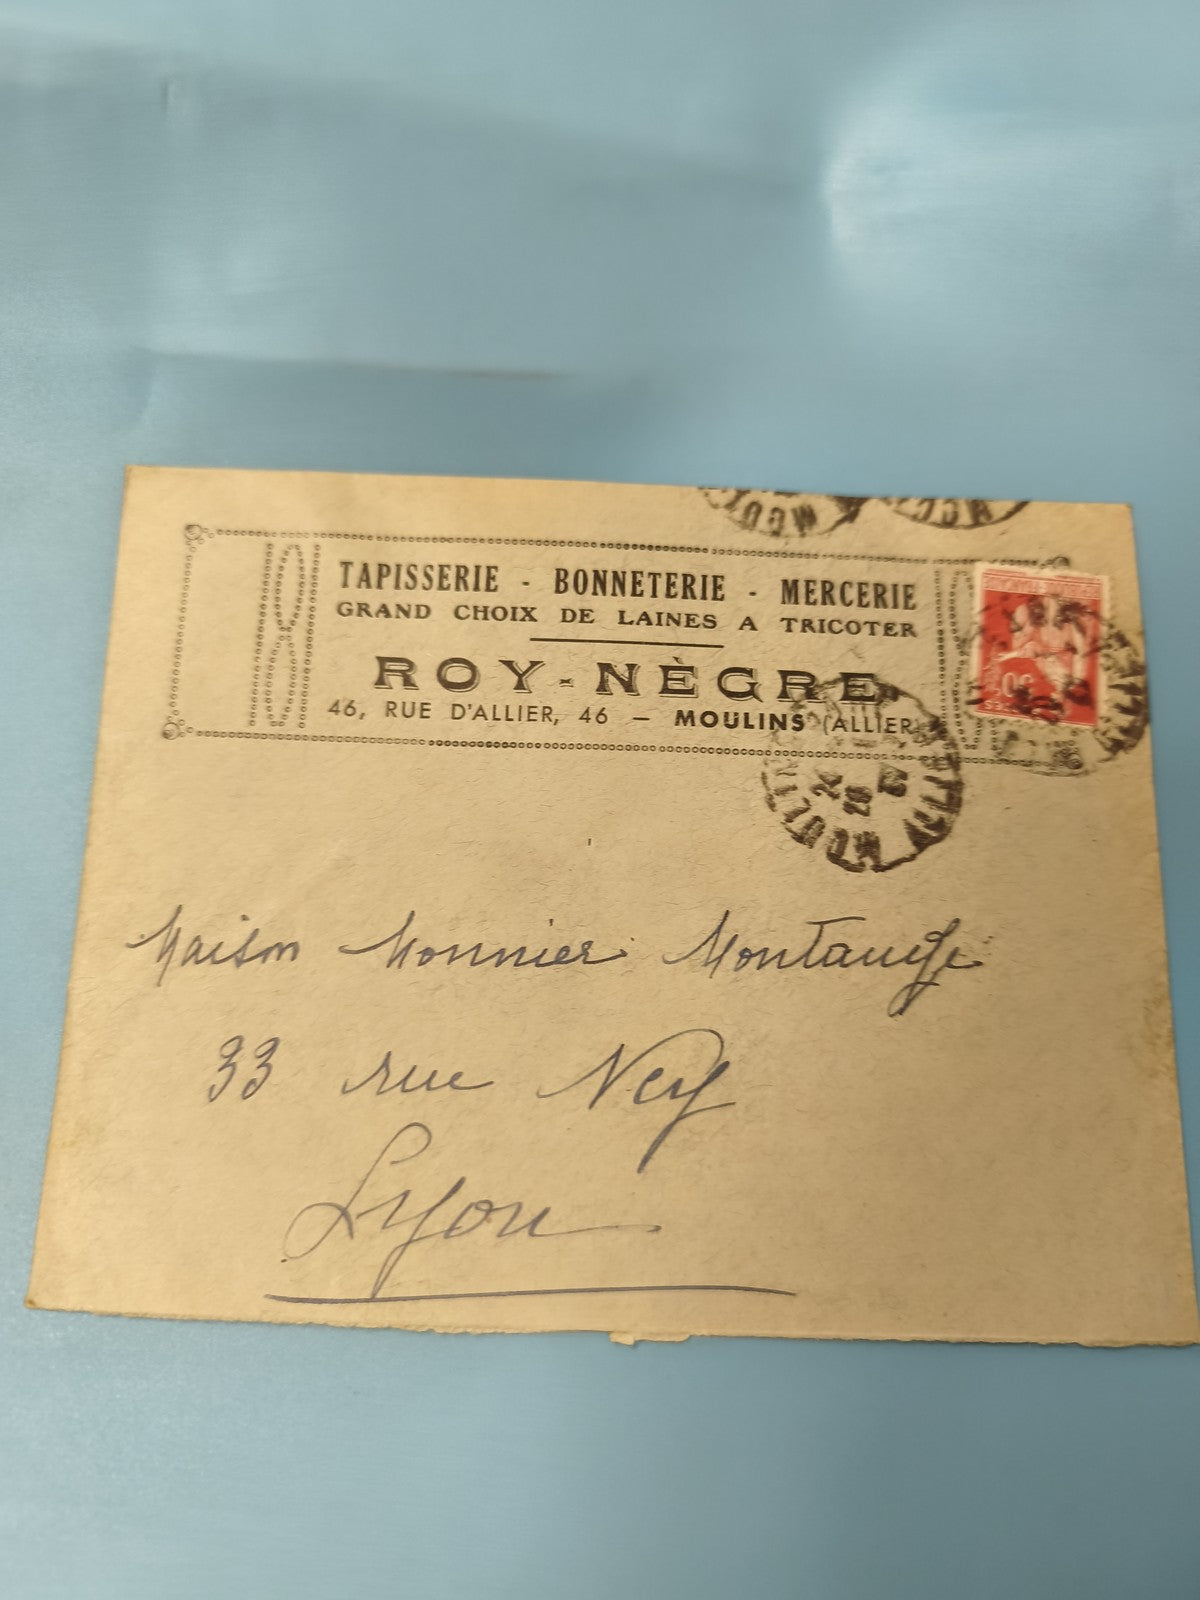 TAPISSERIE - BONNETERIE - MERCERIE
GRAND CHOIX DE LAINES A TRICOTER
ROY-NÈGRE
46, RUE D'ALLIER, 46 — MOULINS (ALLIER)
MOULINS
24
28
Maison Monnier
33 rue Ney
Lyon